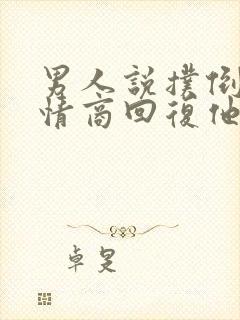 男人說撲倒
情商回復他
卓旻